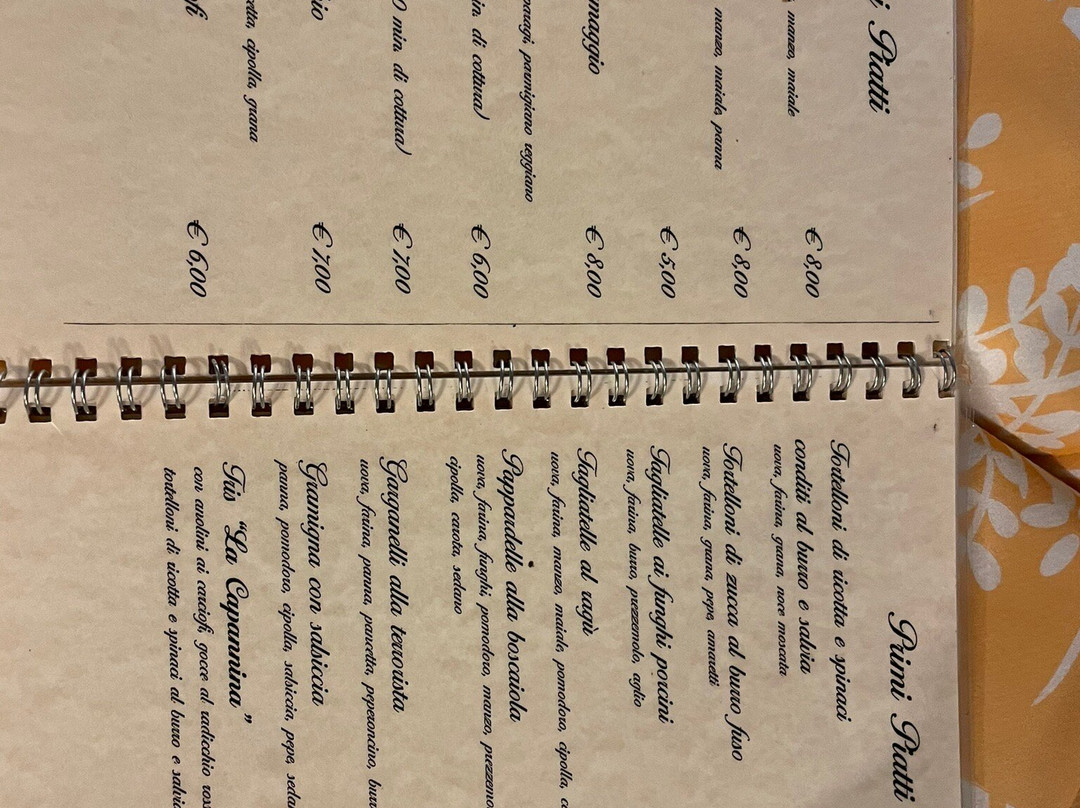 i Piatti
manzo, maiale
€ 8,00
manzo, maiale, panna
€ 8,00
€ 5,00
maggio
€ 8,00
parmigiano reggiano
min. di cottura)
€ 6,00
0 min. di cottura)
€ 7,00
io
€ 7,00
cetta, cipolla, grana
fi
€ 6,00
Primi Piatti
Tortelloni di ricotta e spinaci
conditi al burro e salvia
uova, farina, grana, noce moscata
Tortelloni di zucca al burro fuso
uova, farina, grana, pepe, amaretti
Tagliatelle ai funghi porcini
uova, farina, burro, prezzemolo, aglio
Tagliatelle al ragù
uova, farina, manzo, maiale, pomodoro, cipolla, c
Pappardelle alla boscaiola
uova, farina, funghi, pomodoro, manzo, prezzemo
cipolla, carota, sedano
Garganelli alla terrorista
uova, farina, panna, pancetta, peperoncino, burr
Gramigna con salsiccia
panna, pomodoro, cipolla, salsiccia, pepe, seda
Tris "La Capannina"
con anolini ai carciofi, gocce al radicchio ross
tortelloni di ricotta e spinaci al burro e salvia